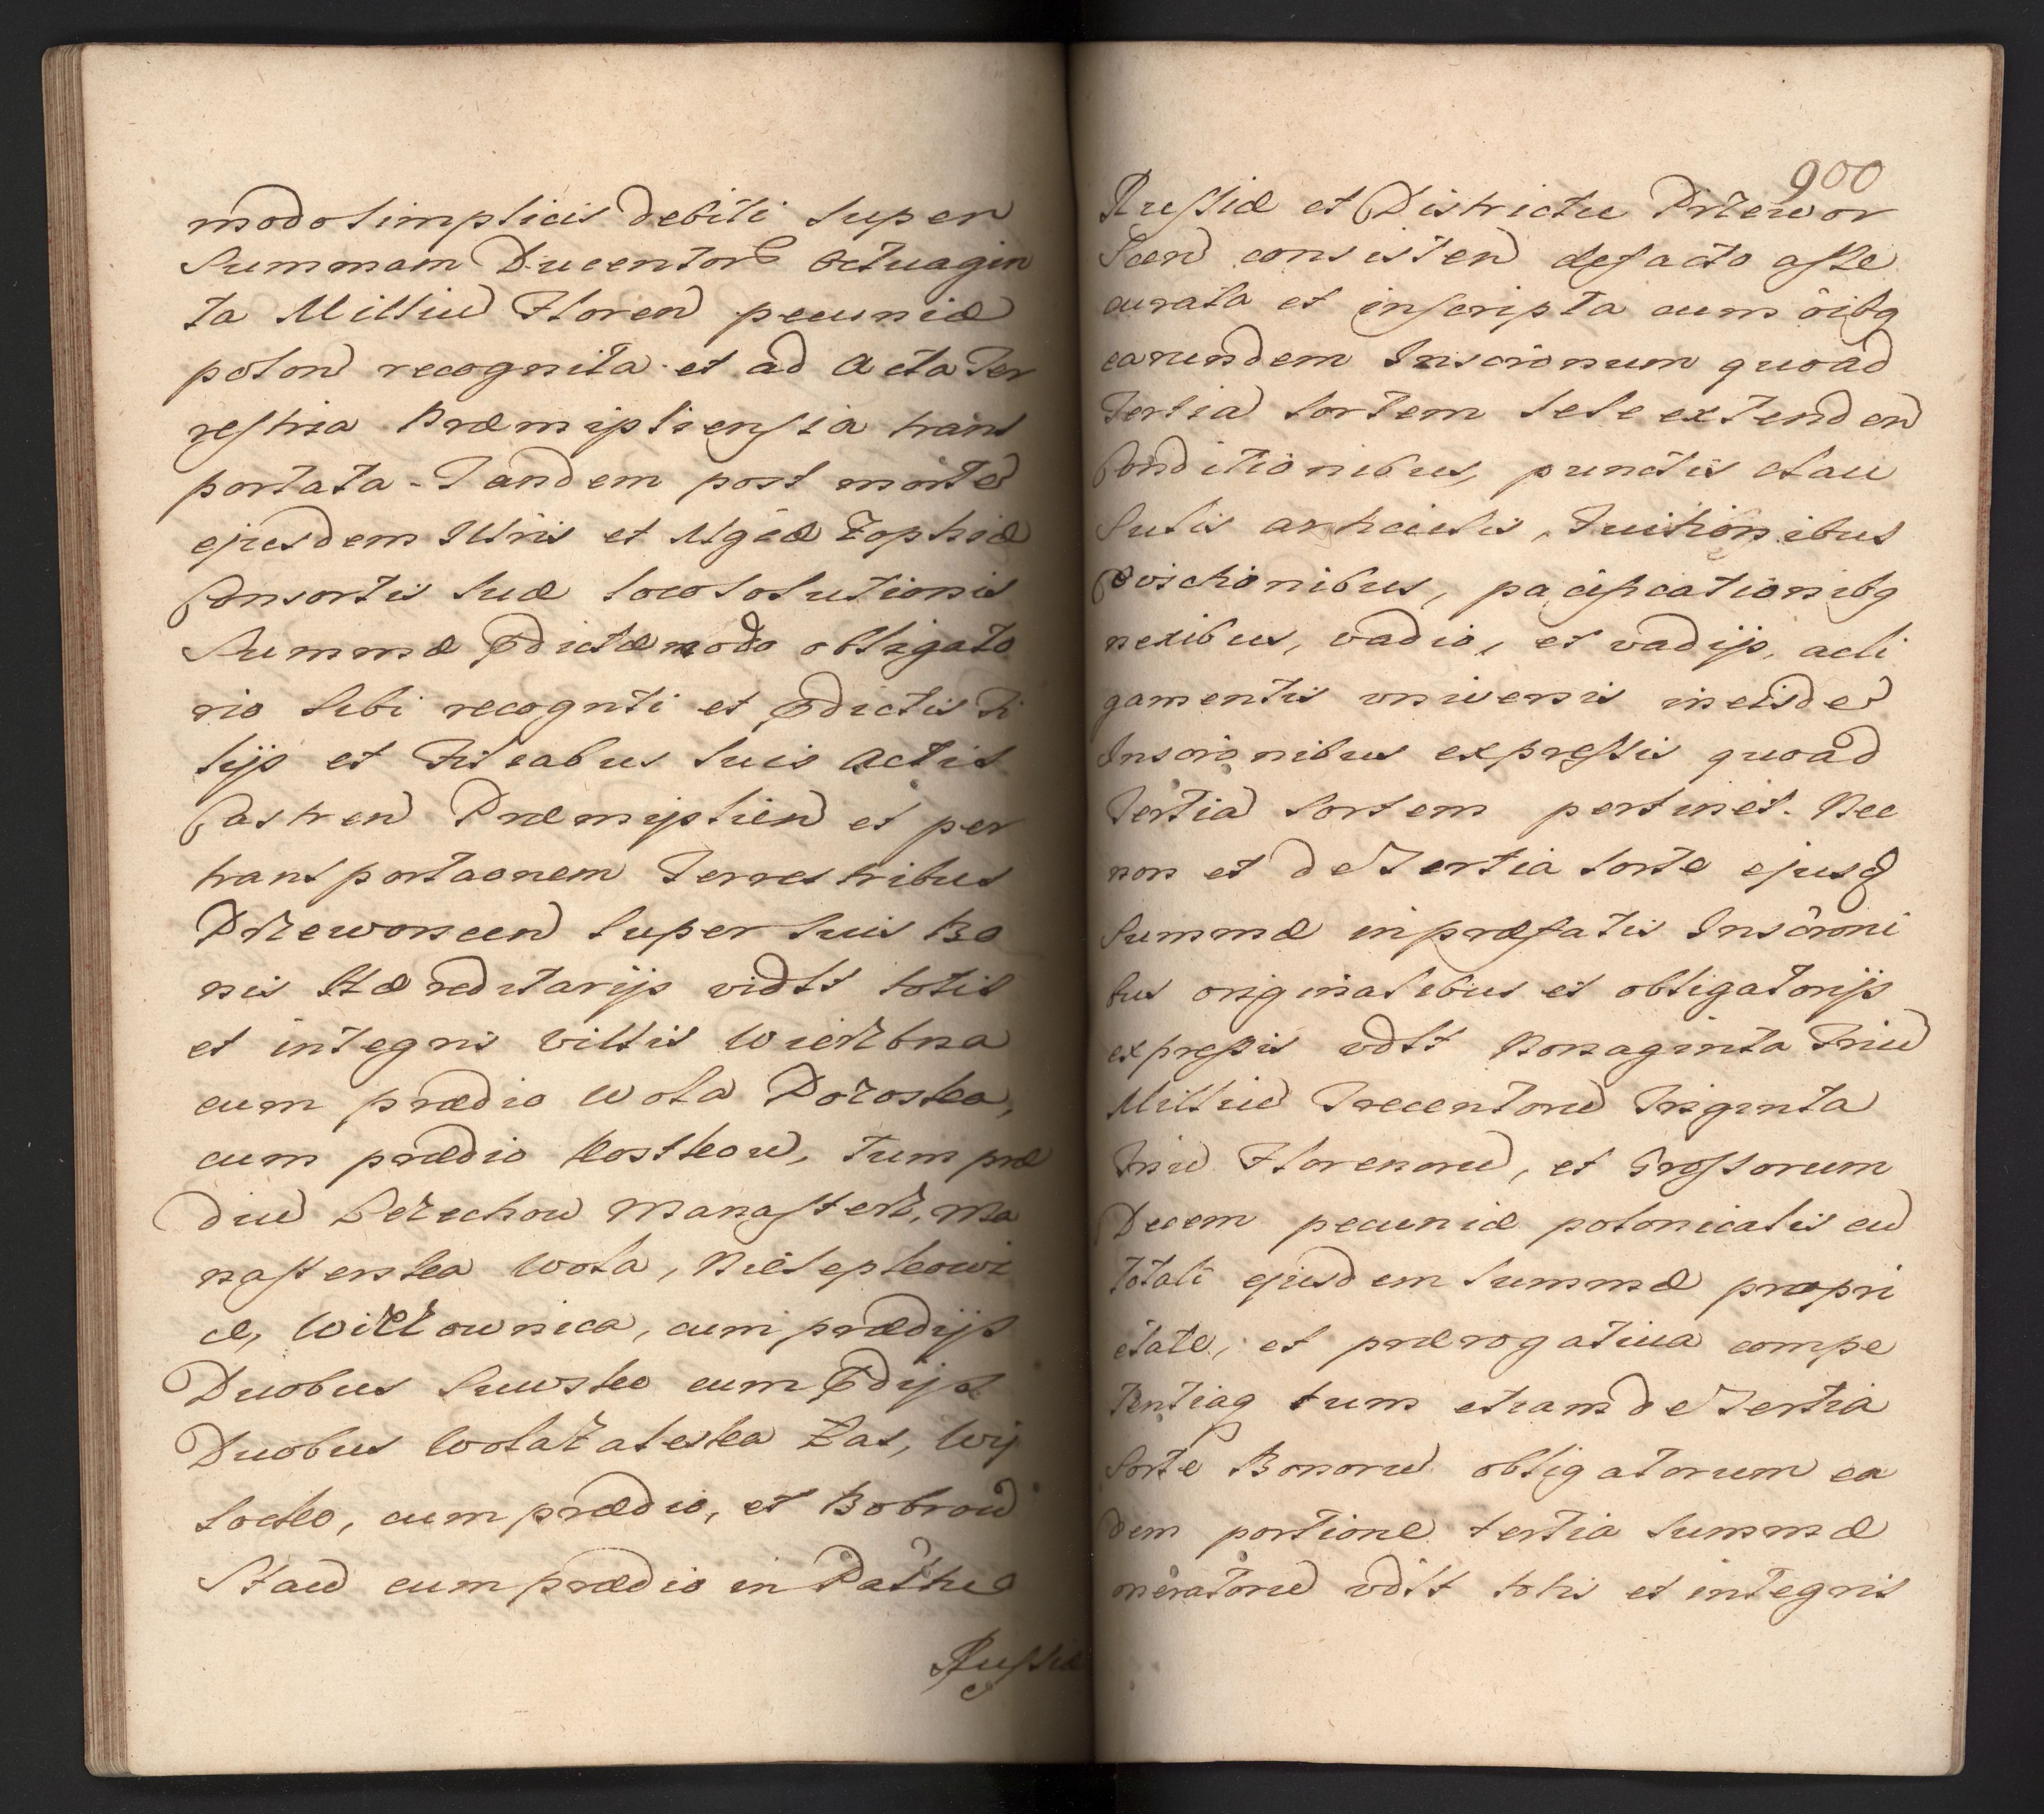 modo simplicis debiti super
Summam Ducentor Octuagin
ta Milliu Floren pecuniæ
polon recognita et ad Acta Ter
restria Præmisliensia trans
portata. Tandem post morte
ejusdem Illris et Mgcæ Zophiæ
Consortis suæ loco solutionis
Summæ pdictæ modo obligato
rio sibi recogniti et pdictis Fi
lijs et Filiabus suis Actis
Castren Præmislien et per
transportaonem Terrestribus
Przeworscen super suis Bo
nis Hæreditarijs vidlt totis
et integris villis Wierzbna
cum prædio Wola Rozoska,
cum prædio Kostkow, tum præ
diu Pełechow Manasterz, Ma
nasterska Wola, Nielepkowi
ce, Wiązownica, cum prædijs
Duobus Surosko cum pdijs
Duobus Wola Zaleska Zas, Wy
locko, cum prædio, et Bobrow
Staw cum prædio in Palthu
Russiæ
900
Russiæ et Districtu Przewor
scen consisten defacto asse
curata et inscripta cum oibq
earundem Inscrionum quoad
Tertia sortem sese extenden
Conditionibus, punctis clau
sulis articulis, Tuitionibus
Evictionibus, pacificationibq
nexibus, vadio, et vadijs, ac li
gamentis universis in eisde
Inscrionibus expressis quoad
Tertia sortem pertinet. Nec
non et de Tertia sorte ejusd
Summæ in præfatis Inscrioni
bus originalibus et obligatorijs
expressis vdlt Nonaginta Triu
Milliu Trecentoru Triginta
Triu Florenoru, et Grossorum
Decem pecuniæ polonicalis cu
totali ejusdem Summæ propri
etate, et prærogativa compe
tentiaq tum etiam de Tertia
Sorte Bonoru obligatorum ea
dem portione tertia Summæ
oneratoru vdlt totis et integris